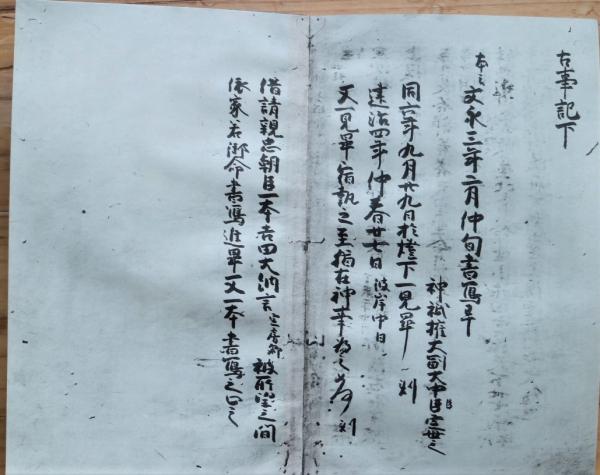 古事記下
本云
文永三年二月中旬書写畢
神祇権大副大中臣定世云
同六年九月廿九日於燈下一見畢 判
建治四年仲春廿七日 彼岸中日
又一見畢宿執之至指在神事
判
借請親忠朝臣一本吉田大納言定房卿被所望之間
依家君御命書写進畢又一本書写之